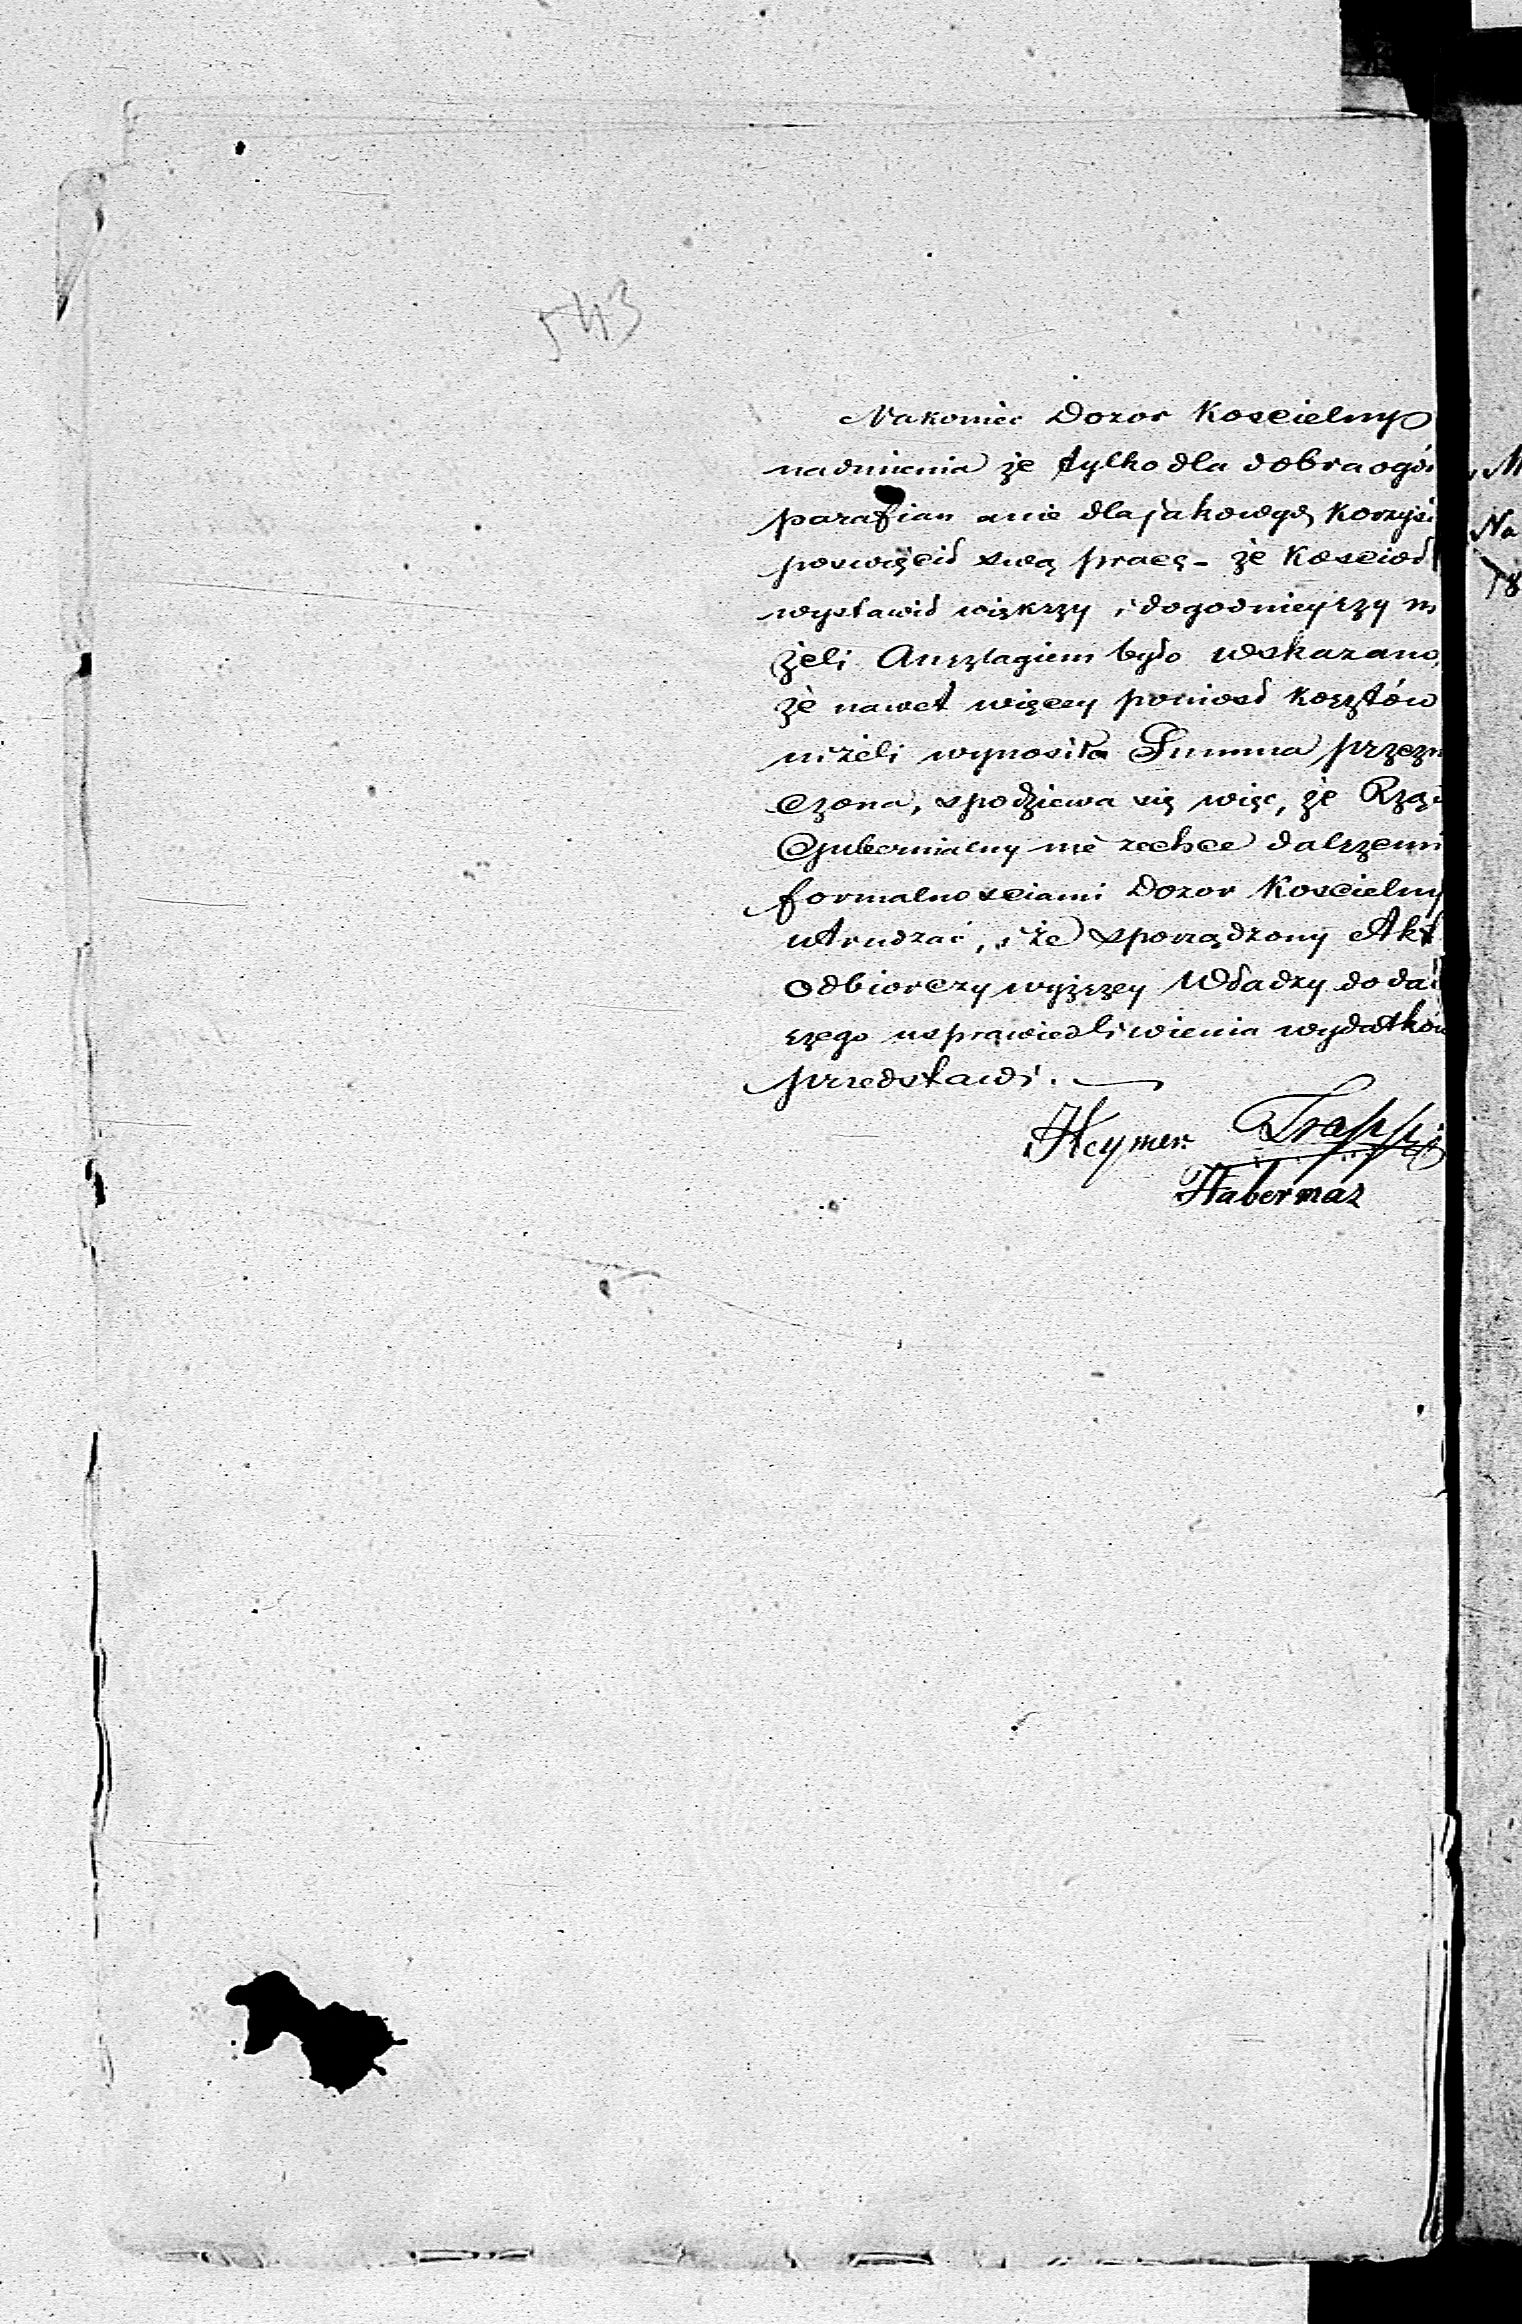 543
Nakoniec Dozor Koscielny
nadmienia że tylko dla dobra ogó
parafian a nie dla jakowych korzyści
poswięcił swą pracę - że Kosciod
wystawił większy i dogodnieyszy ni
żeli Anszlagiem było wskazano,
że nawet więcey poniosł kosztów
niżeli wynosiła Summa przezn
czona, spodziewa się więc, że Rząd
Gubernialny nie zechce dalszemi
formalnosciami Dozor Koscielny
utrudzać, i że sporządzony Akt
odbiorczy wyższey Władzy do dal
szego usprawiedliwienia wydatków
przedstawi. —
Heymer Trappi
Habermaz
M
Na
18